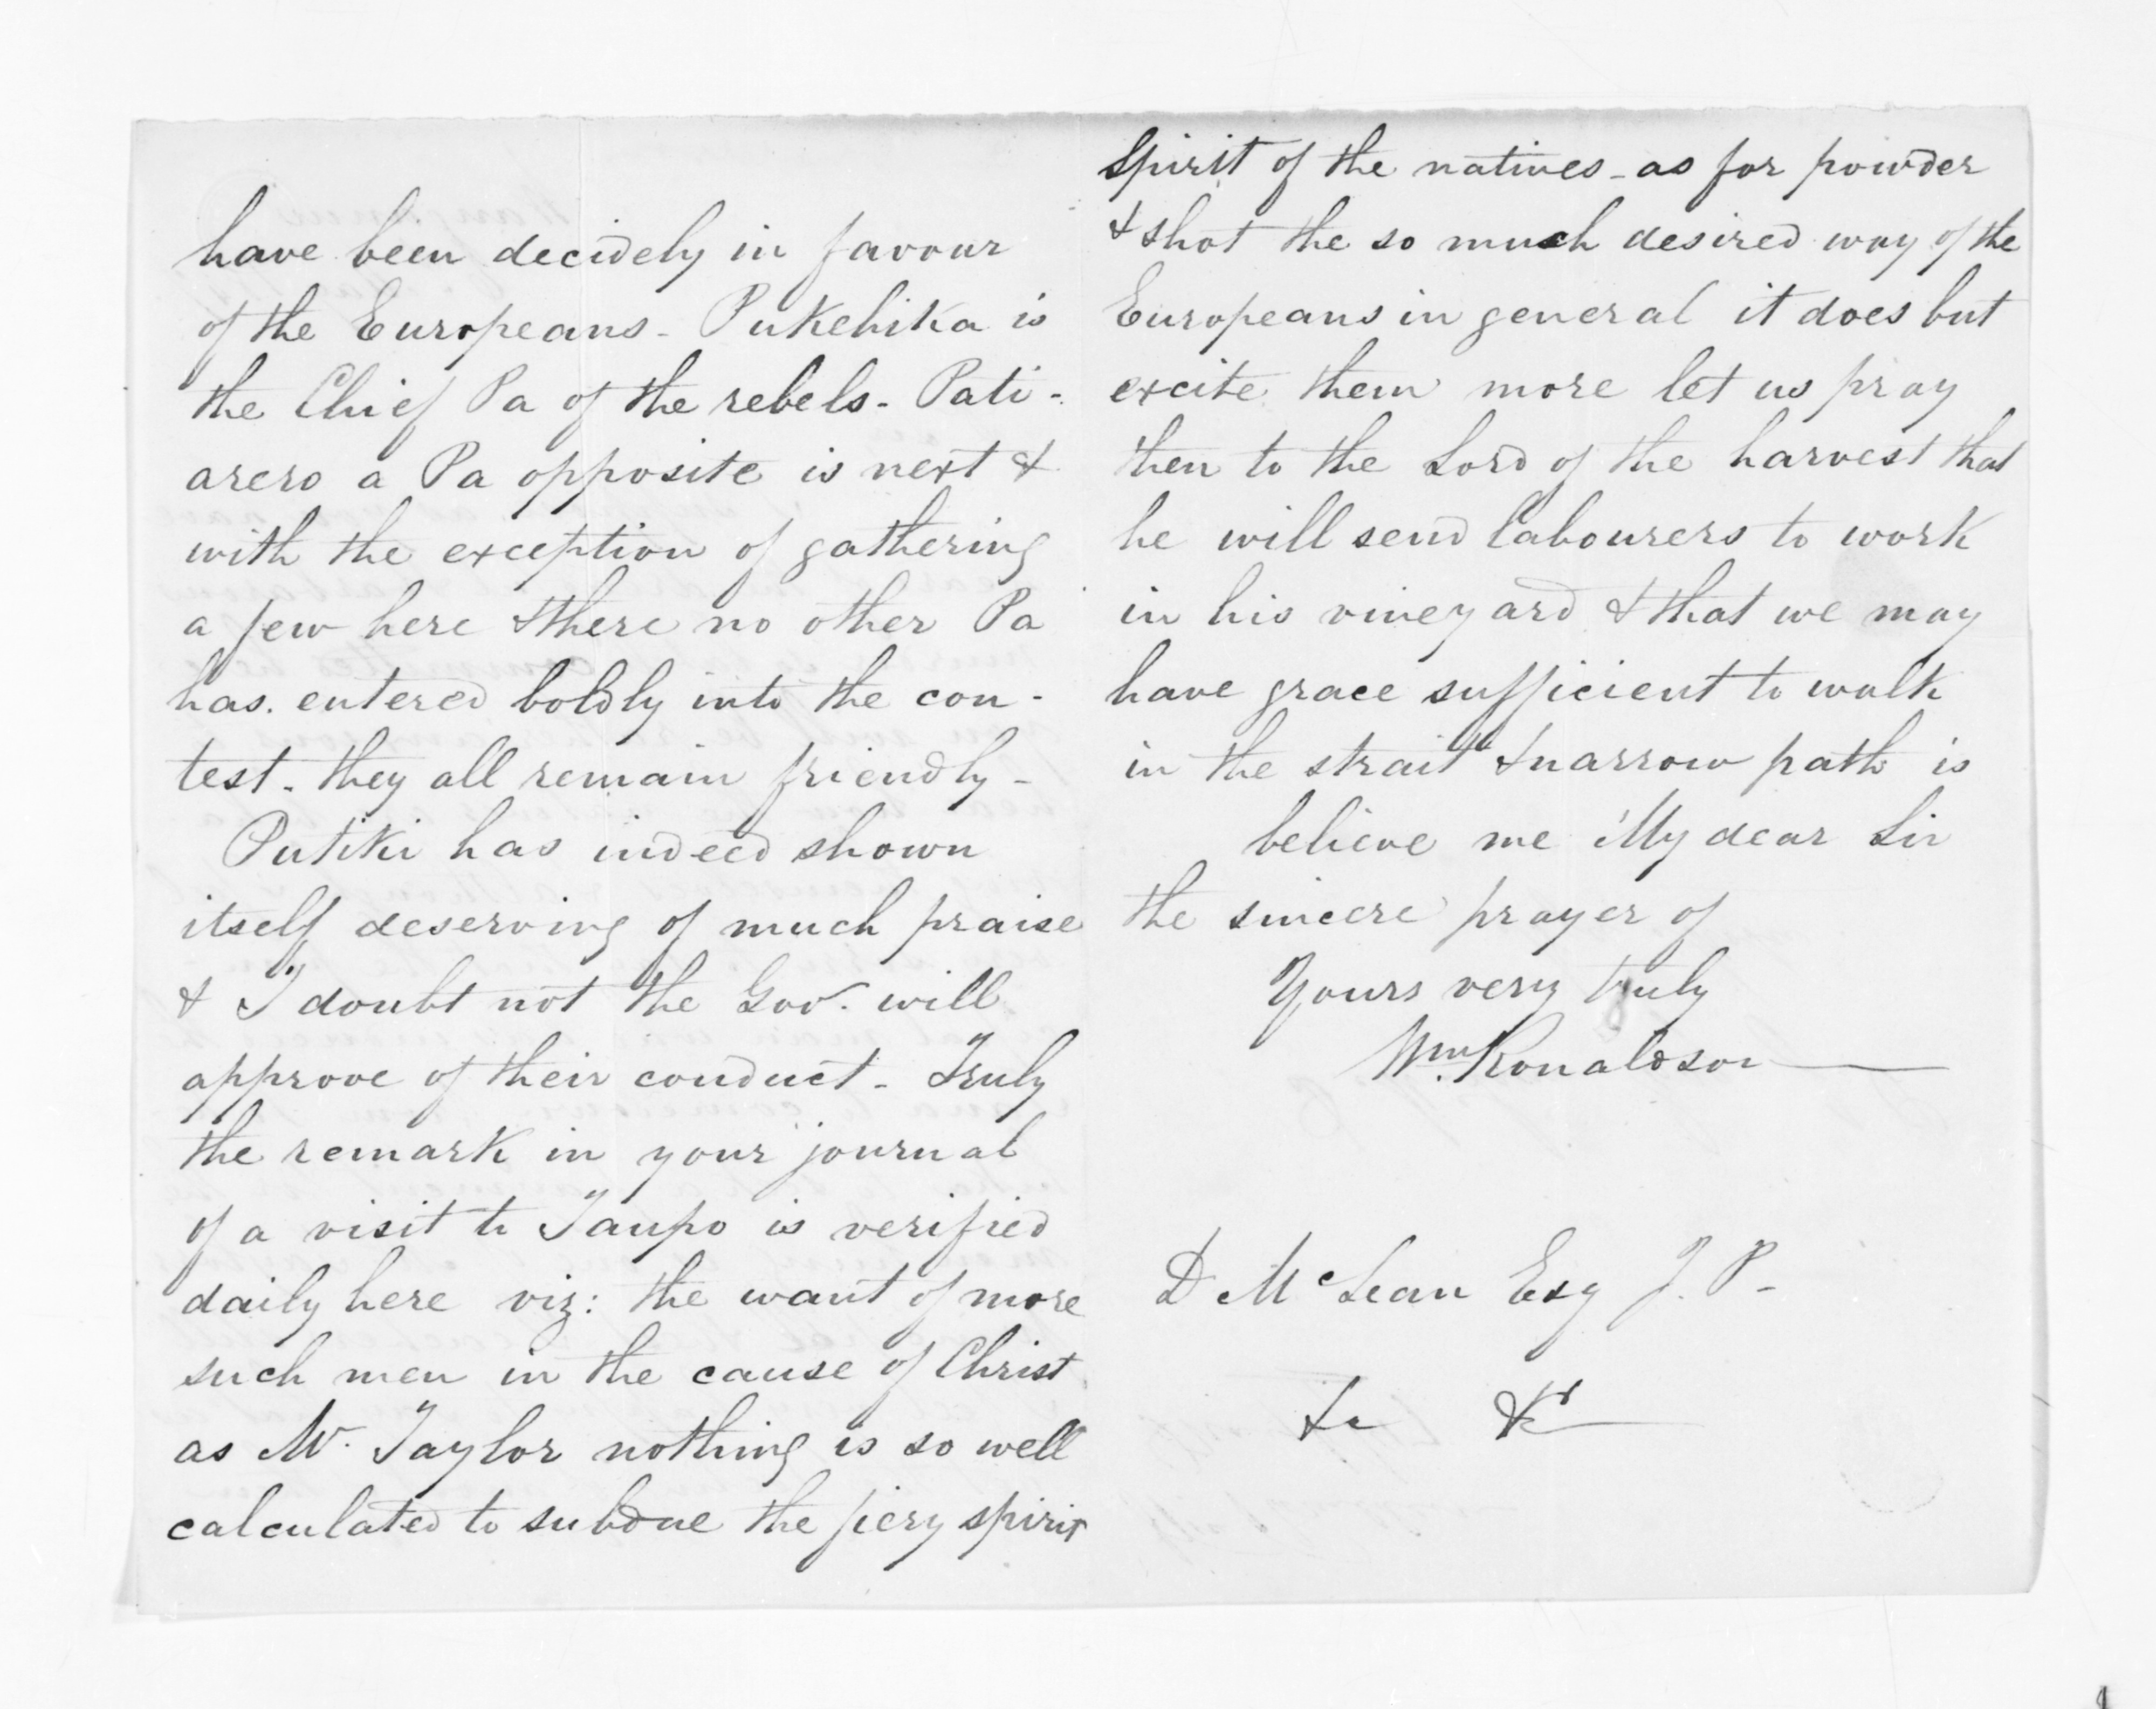 have been decidely in favour
of the Europeans - Pukehika is
the Chief Pa of the rebels - Pati-
arero a Pa opposite is next &
with the exception of gathering
a few here & there no other Pa
has entered boldly into the con-
test - they all remain friendly -
Putiki has indeed shown
itself deserving of much praise
& I doubt not the Gov. will
approve of their conduct - Truly
the remark in your journal
of a visit to Taupo is verified
daily here viz: the want of more
such men in the cause of Christ
as Mr. Taylor nothing is so well
calculated to subdue the fiery spirit
spirit of the natives - as for powder
& shot the so much desired way of the
Europeans in general it does but
excite them more let us pray
then to the Lord of the harvest that
he will send labourers to work
in his vineyard & that we may
have grace sufficient to walk
in the strait & narrow path is
believe me My dear Sir
the sincere prayer of
Yours very truly
Wm. Ronaldson
D McLean Esq J. P. -
&c &c